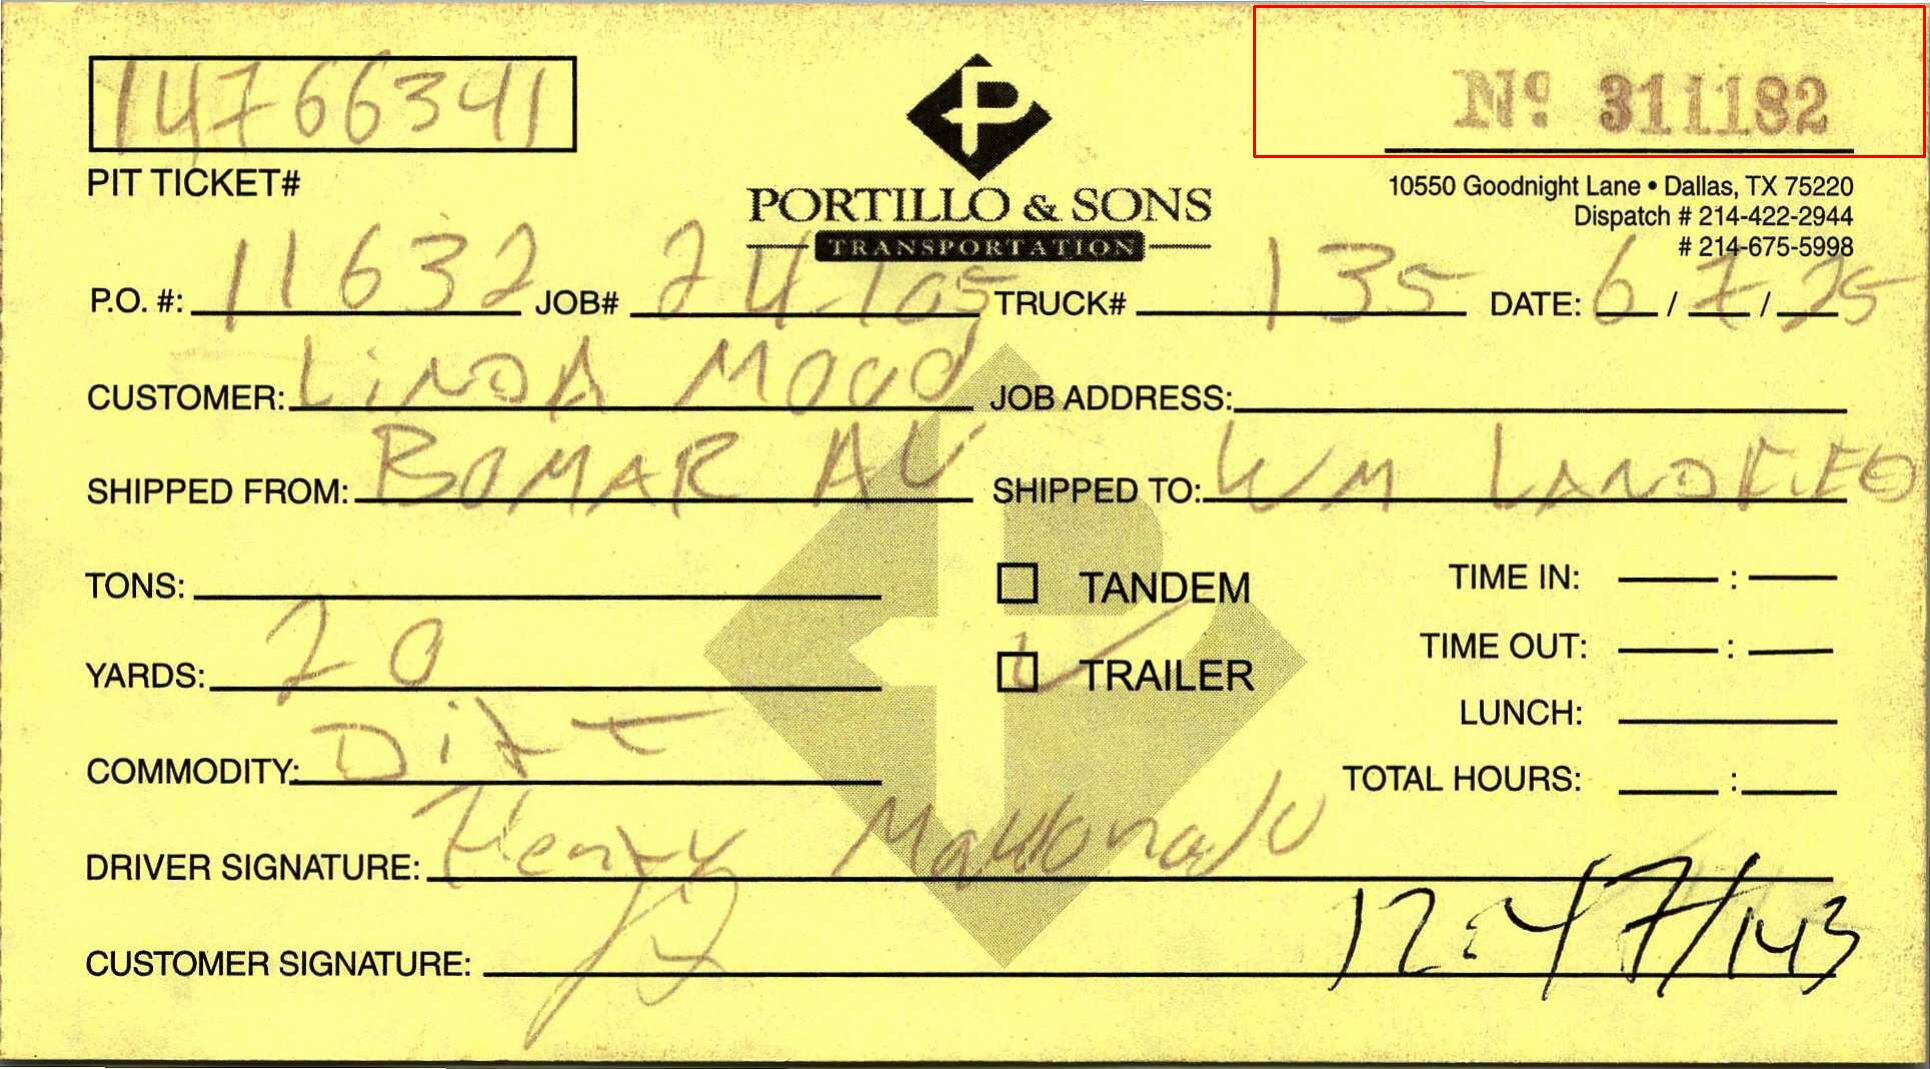 14766341
Nº 311182
PIT TICKET#
PORTILLO & SONS
TRANSPORTATION
10550 Goodnight Lane • Dallas, TX 75220
Dispatch # 214-422-2944
# 214-675-5998
P.O. #: 11632 JOB# 24-105 TRUCK# 135 DATE: 6 / 7 / 25
CUSTOMER: LiNDA MOOD JOB ADDRESS:
SHIPPED FROM: BOMAR AV SHIPPED TO: WM
TONS: TANDEM TIME IN: :
YARDS: 20 TRAILER TIME OUT: :
LUNCH:
COMMODITY: Dirt TOTAL HOURS: :
DRIVER SIGNATURE: Henry Maldonado
CUSTOMER SIGNATURE: 12:47/143